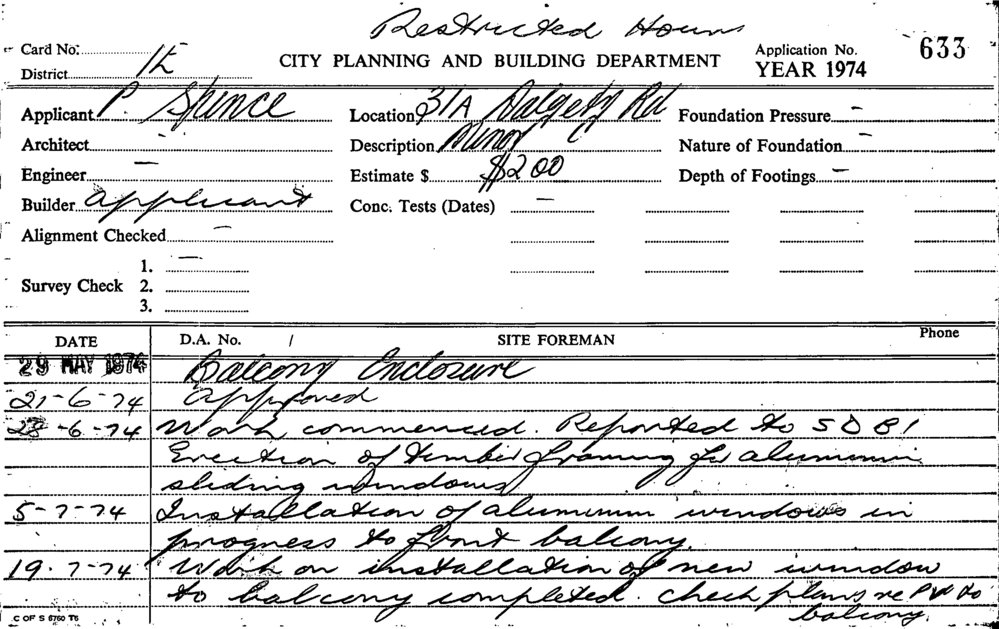 Restricted Hours
Card No:
District 1E
CITY PLANNING AND BUILDING DEPARTMENT
Application No. 633
YEAR 1974
Applicant P. Spence
Location 31A Dalgety Rd
Foundation Pressure —
Architect
Description Minor
Nature of Foundation —
Engineer —
Estimate $ $200
Depth of Footings —
Builder Applicant
Conc. Tests (Dates) —
Alignment Checked —
1. —
Survey Check 2.
3.
DATE D.A. No. / SITE FOREMAN Phone
29 MAY 1974 Balcony Enclosure
21-6-74 Approved
28-6-74 Work commenced. Reported to S D B I
Erection of timber framing for aluminium
sliding windows
5-7-74 Installation of aluminium windows in
progress to front balcony.
19.7-74 Work on installation of new window
to balcony completed. Check plans re to
balcony.
C OF S 6760 T6